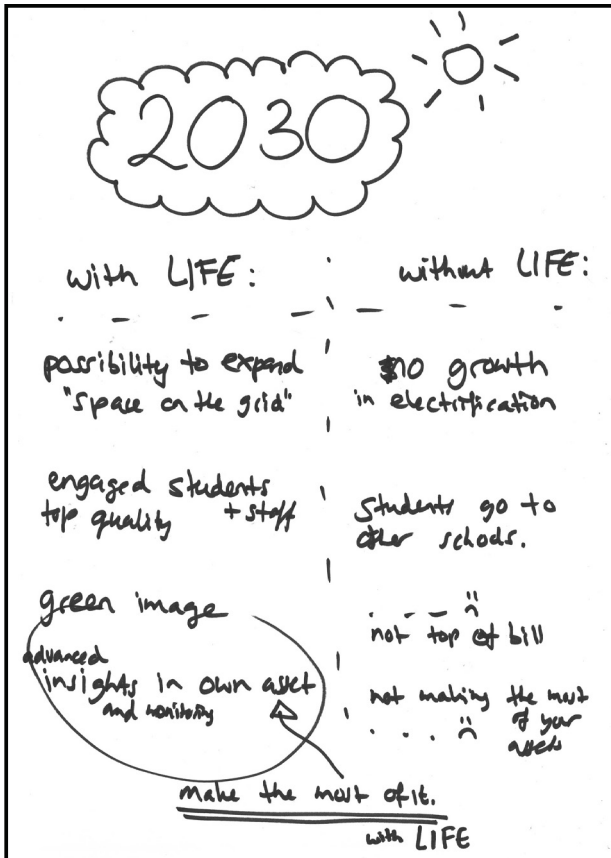 2030
with LIFE:
possibility to expand
"space on the grid"
engaged students
top quality + staff
green image
advanced
insights in own asset
and monitoring
without LIFE:
no growth
in electrification
students go to
other schools.
not top of bill
not making the most
of your
assets
make the most of it.
with LIFE